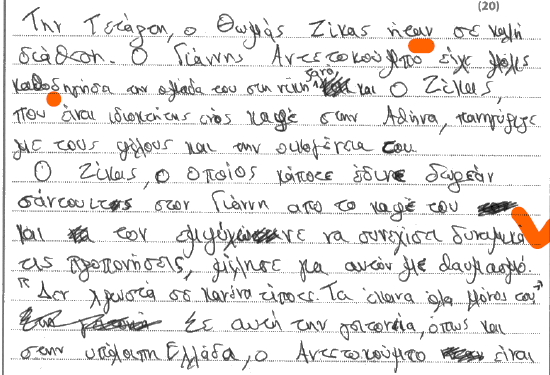 (20)
Την Τετάρτη, ο Θωμάς Ζίκας ήταν σε καλή
διάθεση. Ο Γιάννης Αντετοκούμπο είχε μόλις
καθοδηγήσει την ομάδα του στη νίκη και ο Ζίκας,
που είναι ιδιοκτήτης ενός καφέ στην Αθήνα, πανηγύριζε
με τους φίλους και την οικογένεια του.
Ο Ζίκας, ο οποίος κάποτε έδινε δωρεάν
σάντουιτς στον Γιάννη από το καφέ του
και τον εμψύχωνε να συνεχίσει δυναμικά
τις προπονήσεις, μίλησε για αυτόν με θαυμασμό.
"Δεν χρωστά σε κανένα τίποτε. Τα έκανα όλα μόνος του"
Σε αυτή την γειτονιά, όπως και
στην υπόλοιπη Ελλάδα, ο Αντετοκούμπο είναι